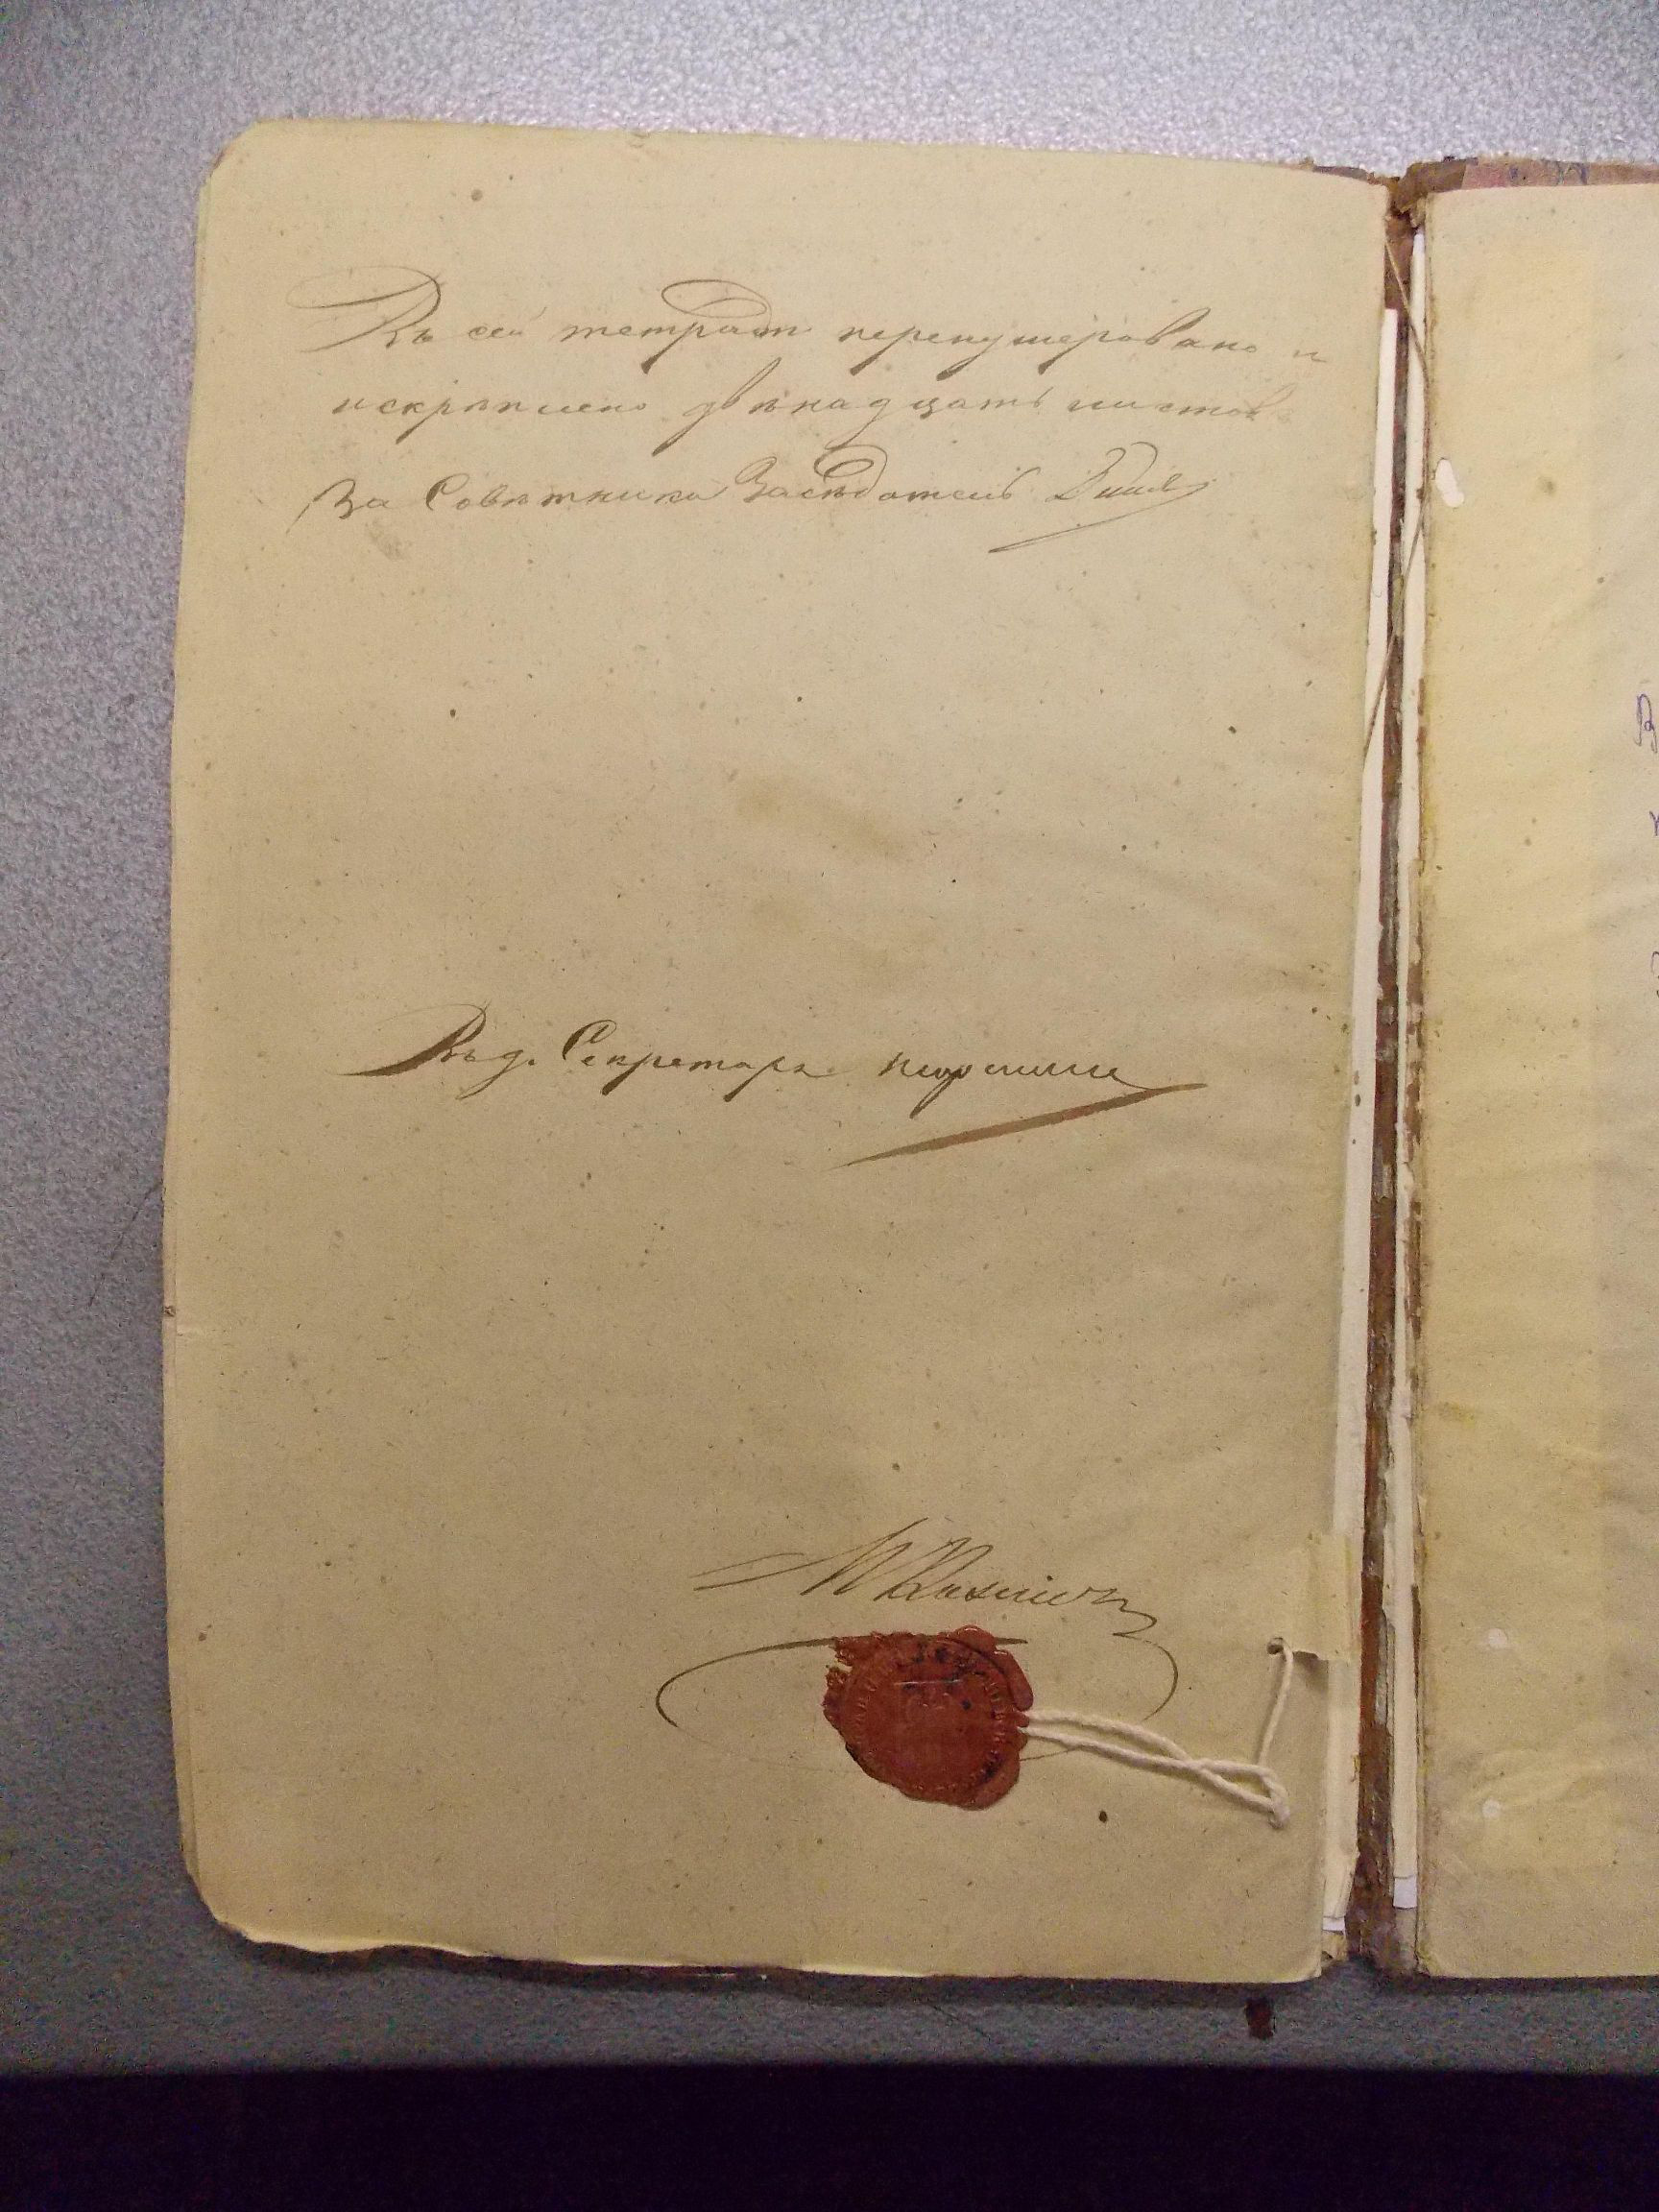 Въ сей тетради перенумеровано и
искрѣплено двѣнадцать листовъ
За Совѣтника Засѣдатель
Въ д. Секретаря